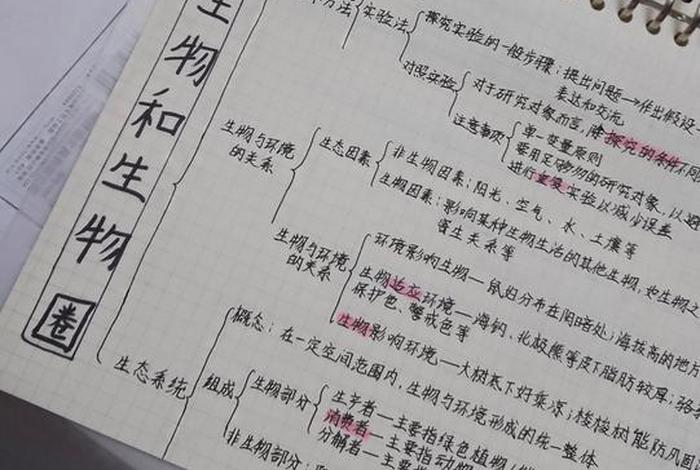 生物和生物圈
方法
实验法
探究实验的一般步骤:提出问题→作出假设
表达和交流
对照实验
对于研究对象而言,除探究的条件不同
注意事项
单一变量原则
要用足够多的研究对象,以避
进行重复实验以减少误差
生物与环境
的关系
生态因素
非生物因素:阳光、空气、水、土壤等
生物因素:影响某种生物生活的其他生物,如生物之
寄生关系等
生物与环境
的关系
环境影响生物—鼠妇分布在阴暗处;海拔高的地方
生物适应环境—海豹、北极熊等皮下脂肪较厚;
保护色、警戒色等
生物影响环境—大树底下好乘凉;梭梭树能防风固
生态系统
概念:在一定空间范围内,生物与环境形成的统一整体
组成
生物部分
生产者—主要指绿色植物
消费者—主要指动物
分解者—主要指
非生物部分: